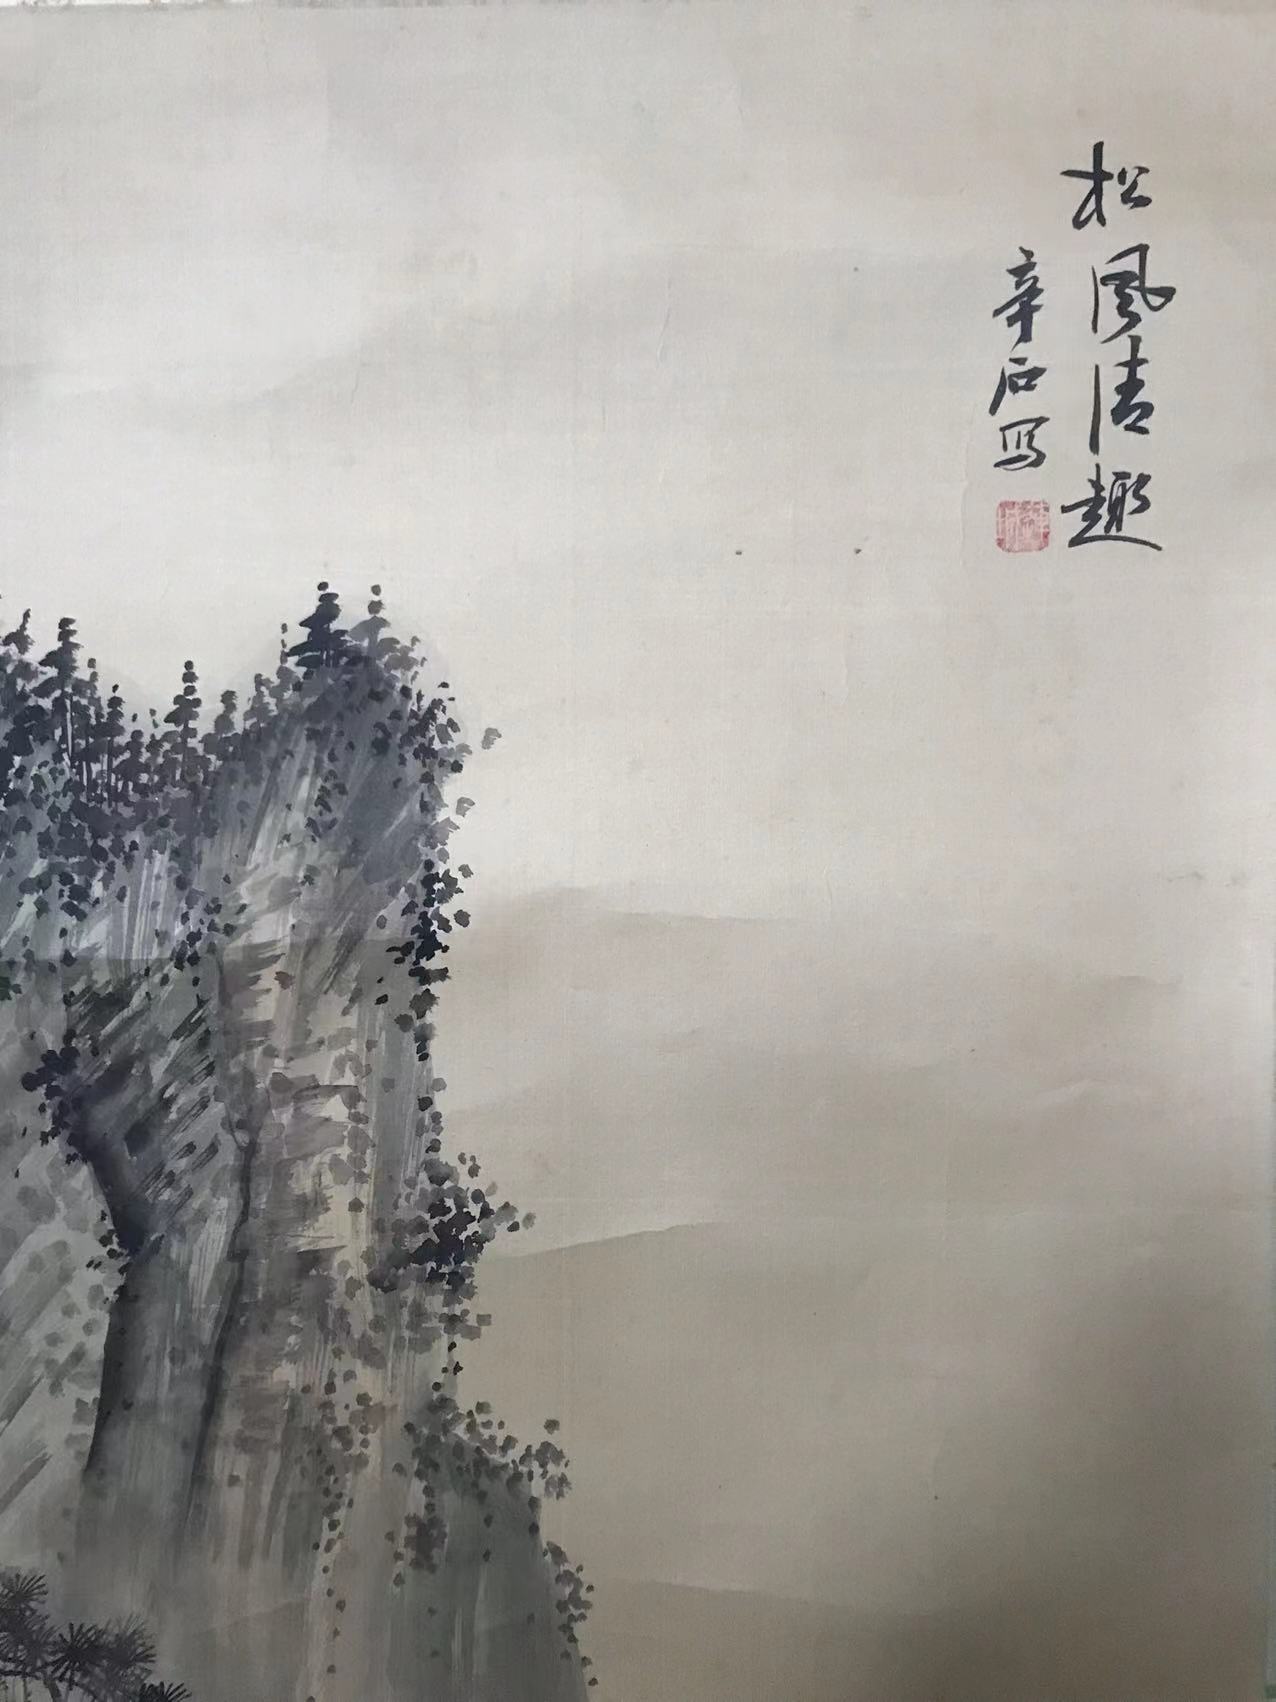 松风清趣
辛石写